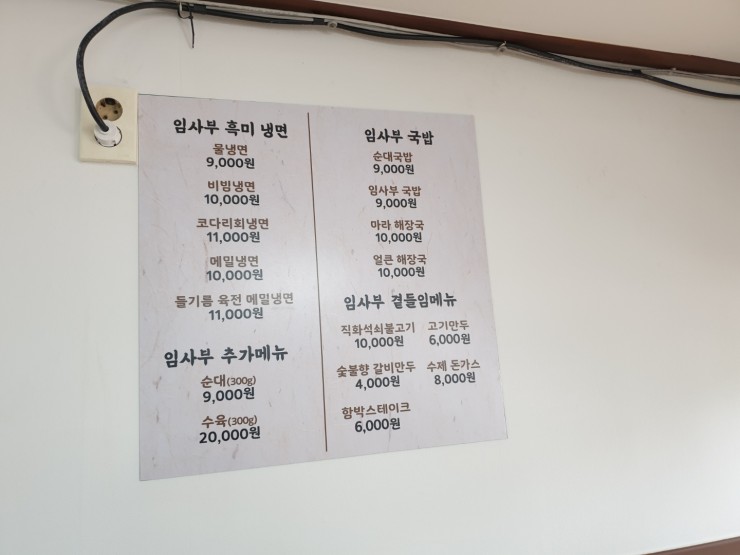 임사부 흑미 냉면
물냉면
9,000원
비빙냉면
10,000원
코다리회냉면
11,000원
메밀냉면
10,000원
들기름 육전 메밀냉면
11,000원
임사부 추가메뉴
순대(300g)
9,000원
수육(300g)
20,000원
임사부 국밥
순대국밥
9,000원
임사부 국밥
9,000원
마라 해장국
10,000원
얼큰 해장국
10,000원
임사부 곁들임메뉴
직화석쇠불고기 고기만두
10,000원 6,000원
숯불향 갈비만두 수제 돈가스
4,000원 8,000원
함박스테이크
6,000원